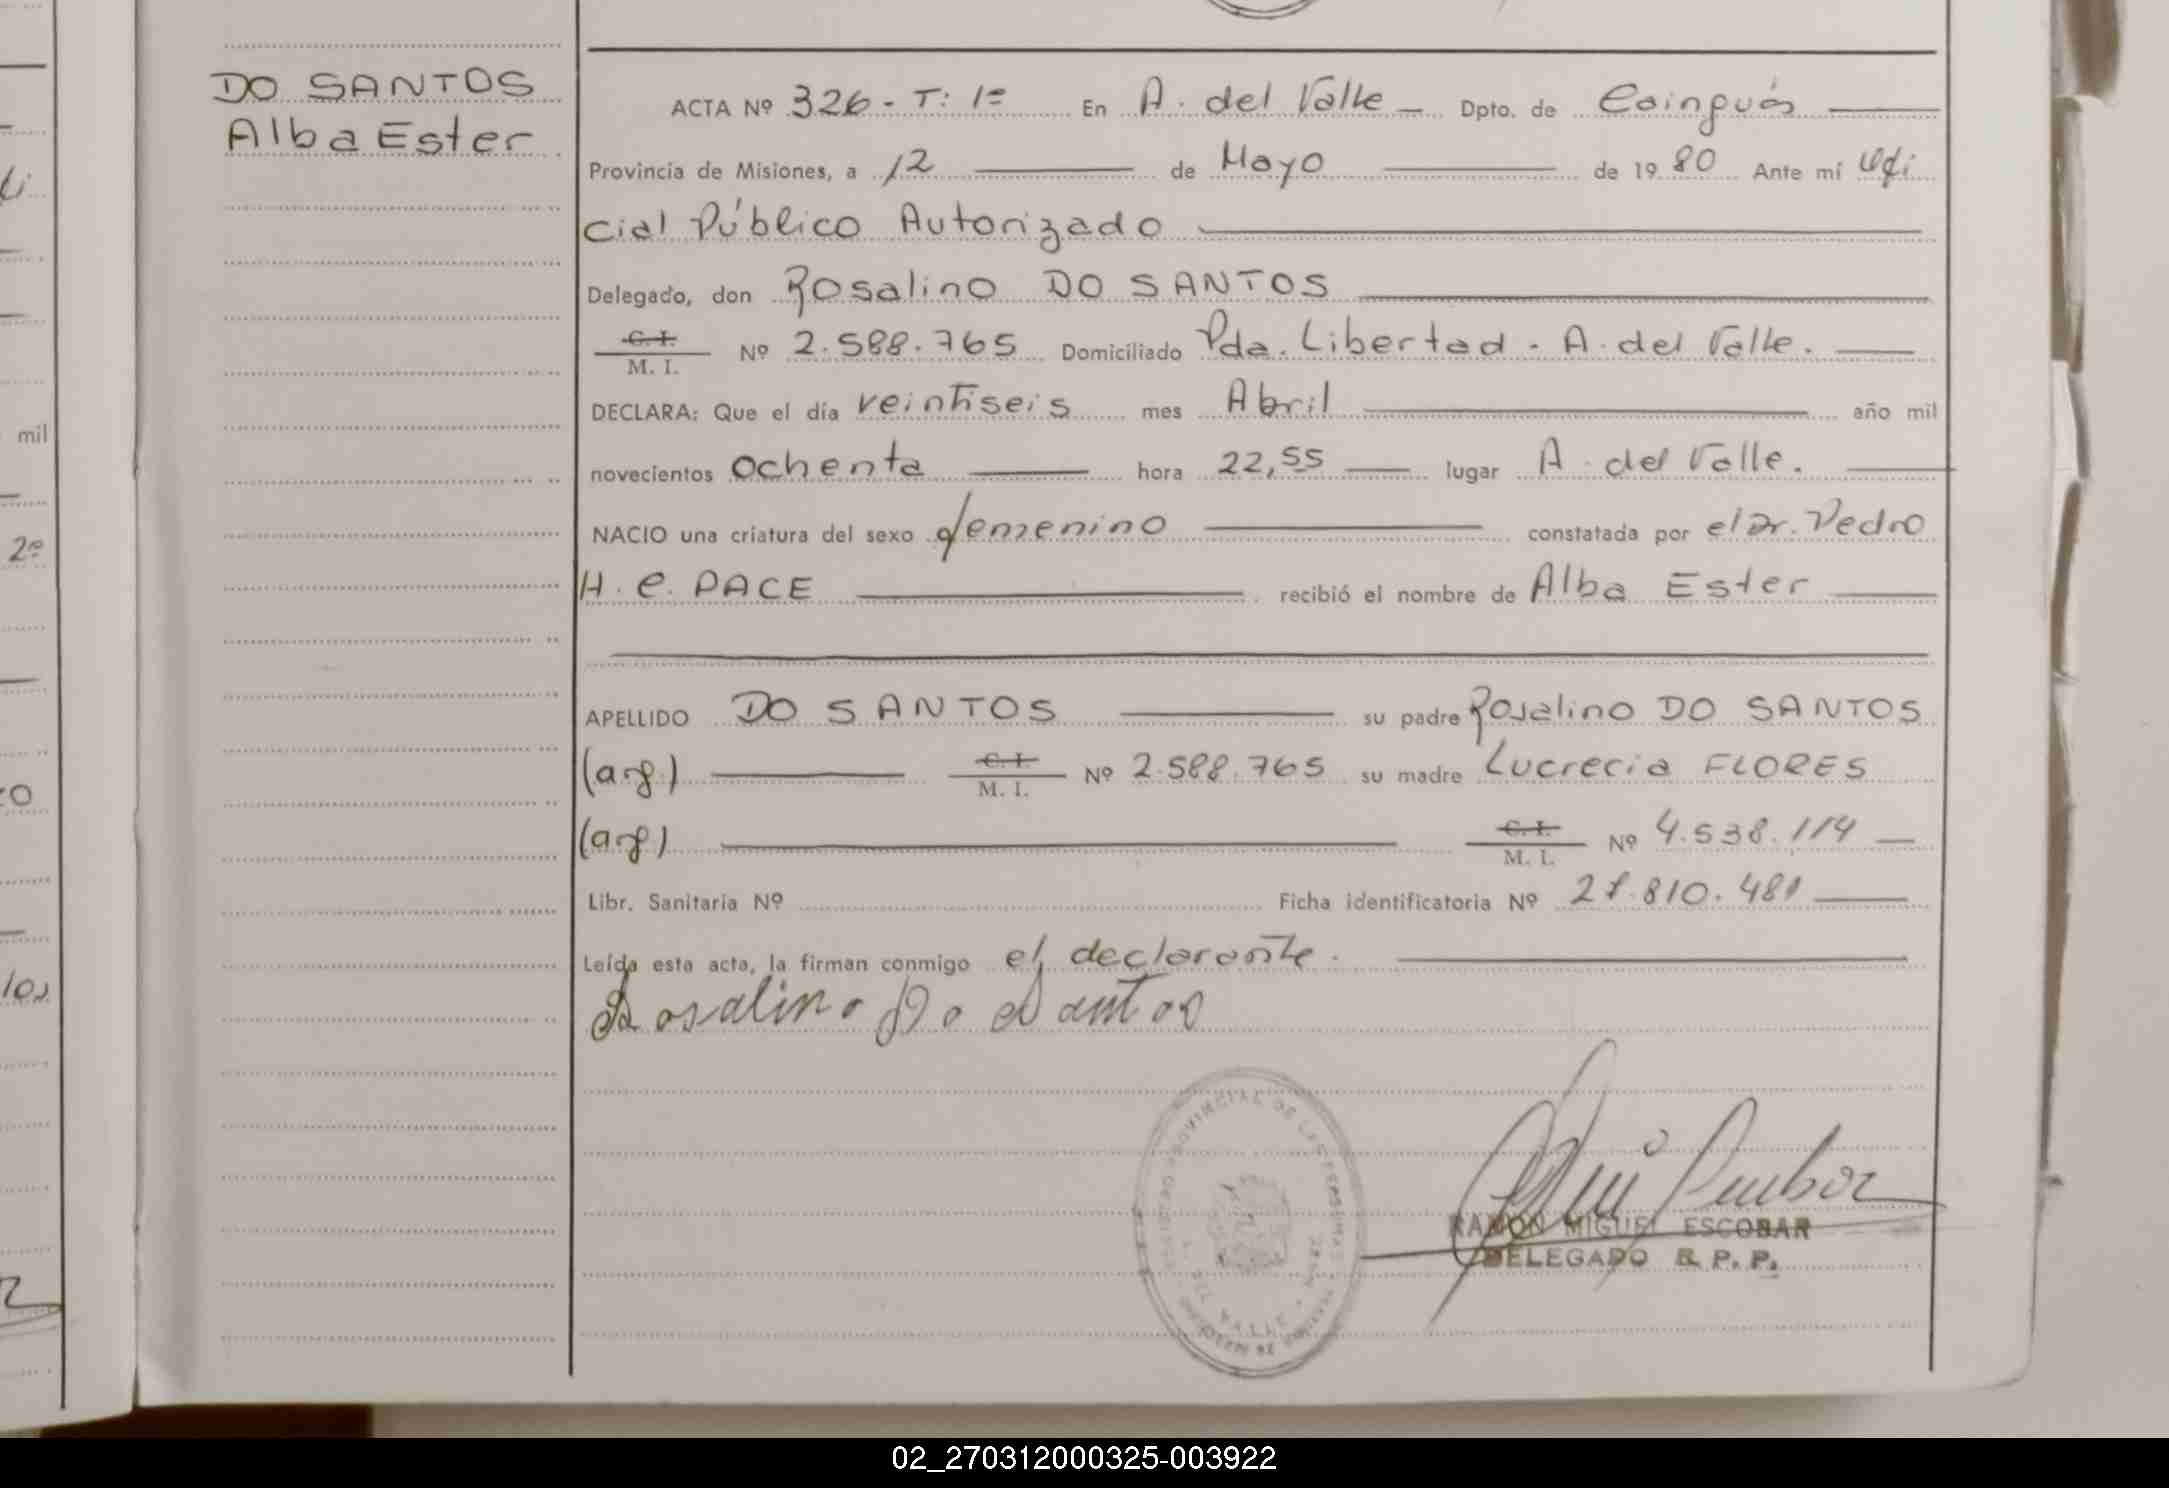 DO SANTOS
Alba Ester
ACTA Nº 326 - T: 1º En A. del Valle Dpto. de Cainguás
Provincia de Misiones, a 12 de Mayo de 1980 Ante mí Ofi
cial Público Autorizado
Delegado, don Rosalino DO SANTOS
C. I.
M. I. Nº 2.588.765 Domiciliado Pda. Libertad - A. del Valle.
DECLARA: Que el día veintiseis mes Abril año mil
novecientos ochenta hora 22,55 lugar A. del Valle.
NACIO una criatura del sexo femenino constatada por el Dr. Pedro
H. C. PACE recibió el nombre de Alba Ester
APELLIDO DO SANTOS su padre Rosalino DO SANTOS
(arg.) C. I.
M. I. Nº 2.588.765 su madre Lucrecia FLORES
(arg) C. I.
M. I. Nº 4.538.114
Libr. Sanitaria Nº Ficha identificatoria Nº 27.810.481
Leída esta acta, la firman conmigo el declarante.
Rosalino Do Santos
RAMON MIGUEL ESCOBAR
DELEGADO R. P. P.
mil
2º
los
02_270312000325-003922